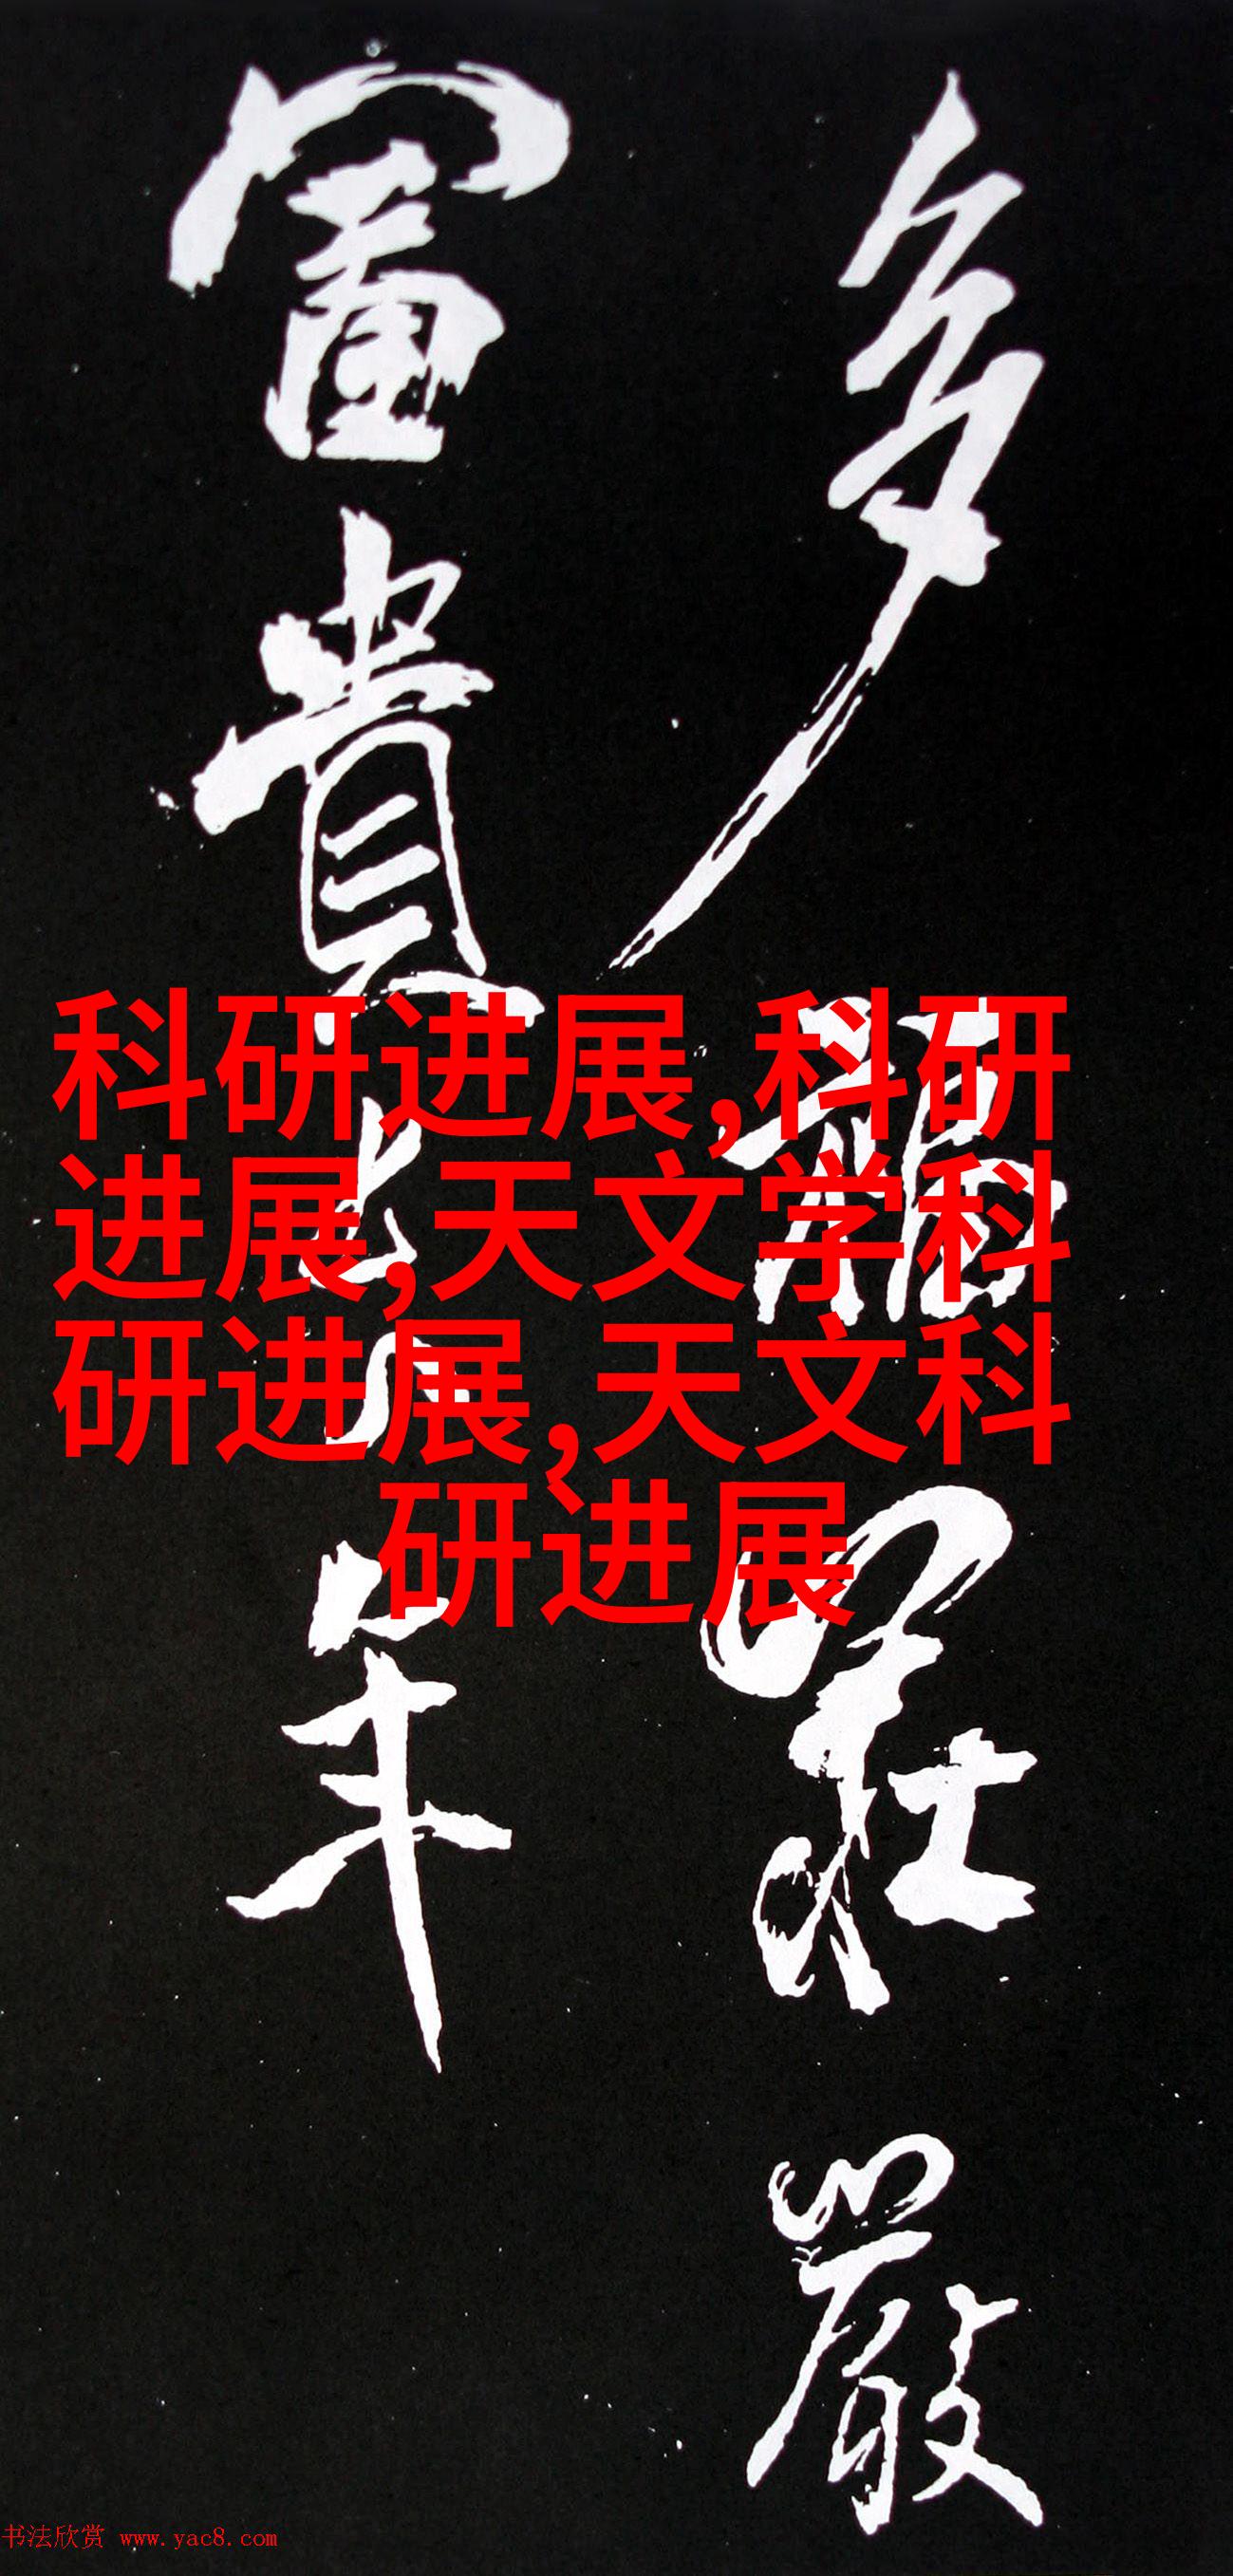 多福莊嚴
富貴年
科研进展,科研
进展,天文学科
研进展,天文科
研进展
书法欣赏 www.yac8.com